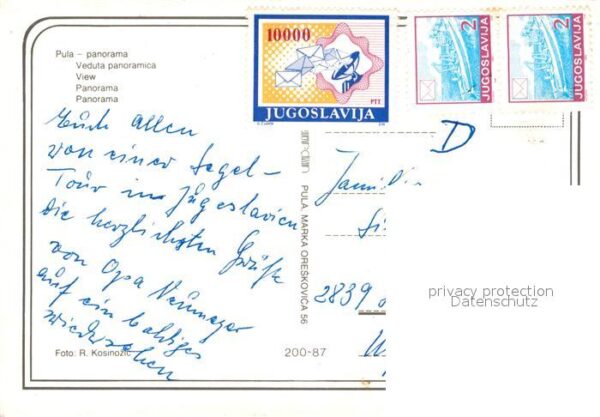 Pula – panorama
Veduta panoramica
View
Panorama
Panorama
10000
PTT
JUGOSLAVIJA
2
JUGOSLAVIJA
2
JUGOSLAVIJA
Euch allen
von einer Segel-
Tour in Jugoslavien
die herzlichsten Grüße
von Opa
auf ein baldiges
wiedersehen
D
Familie
2839
privacy protection
Datenschutz
PULA, MARKA OREŠKOVIĆA 56
Foto: R. Kosinožić
200-87